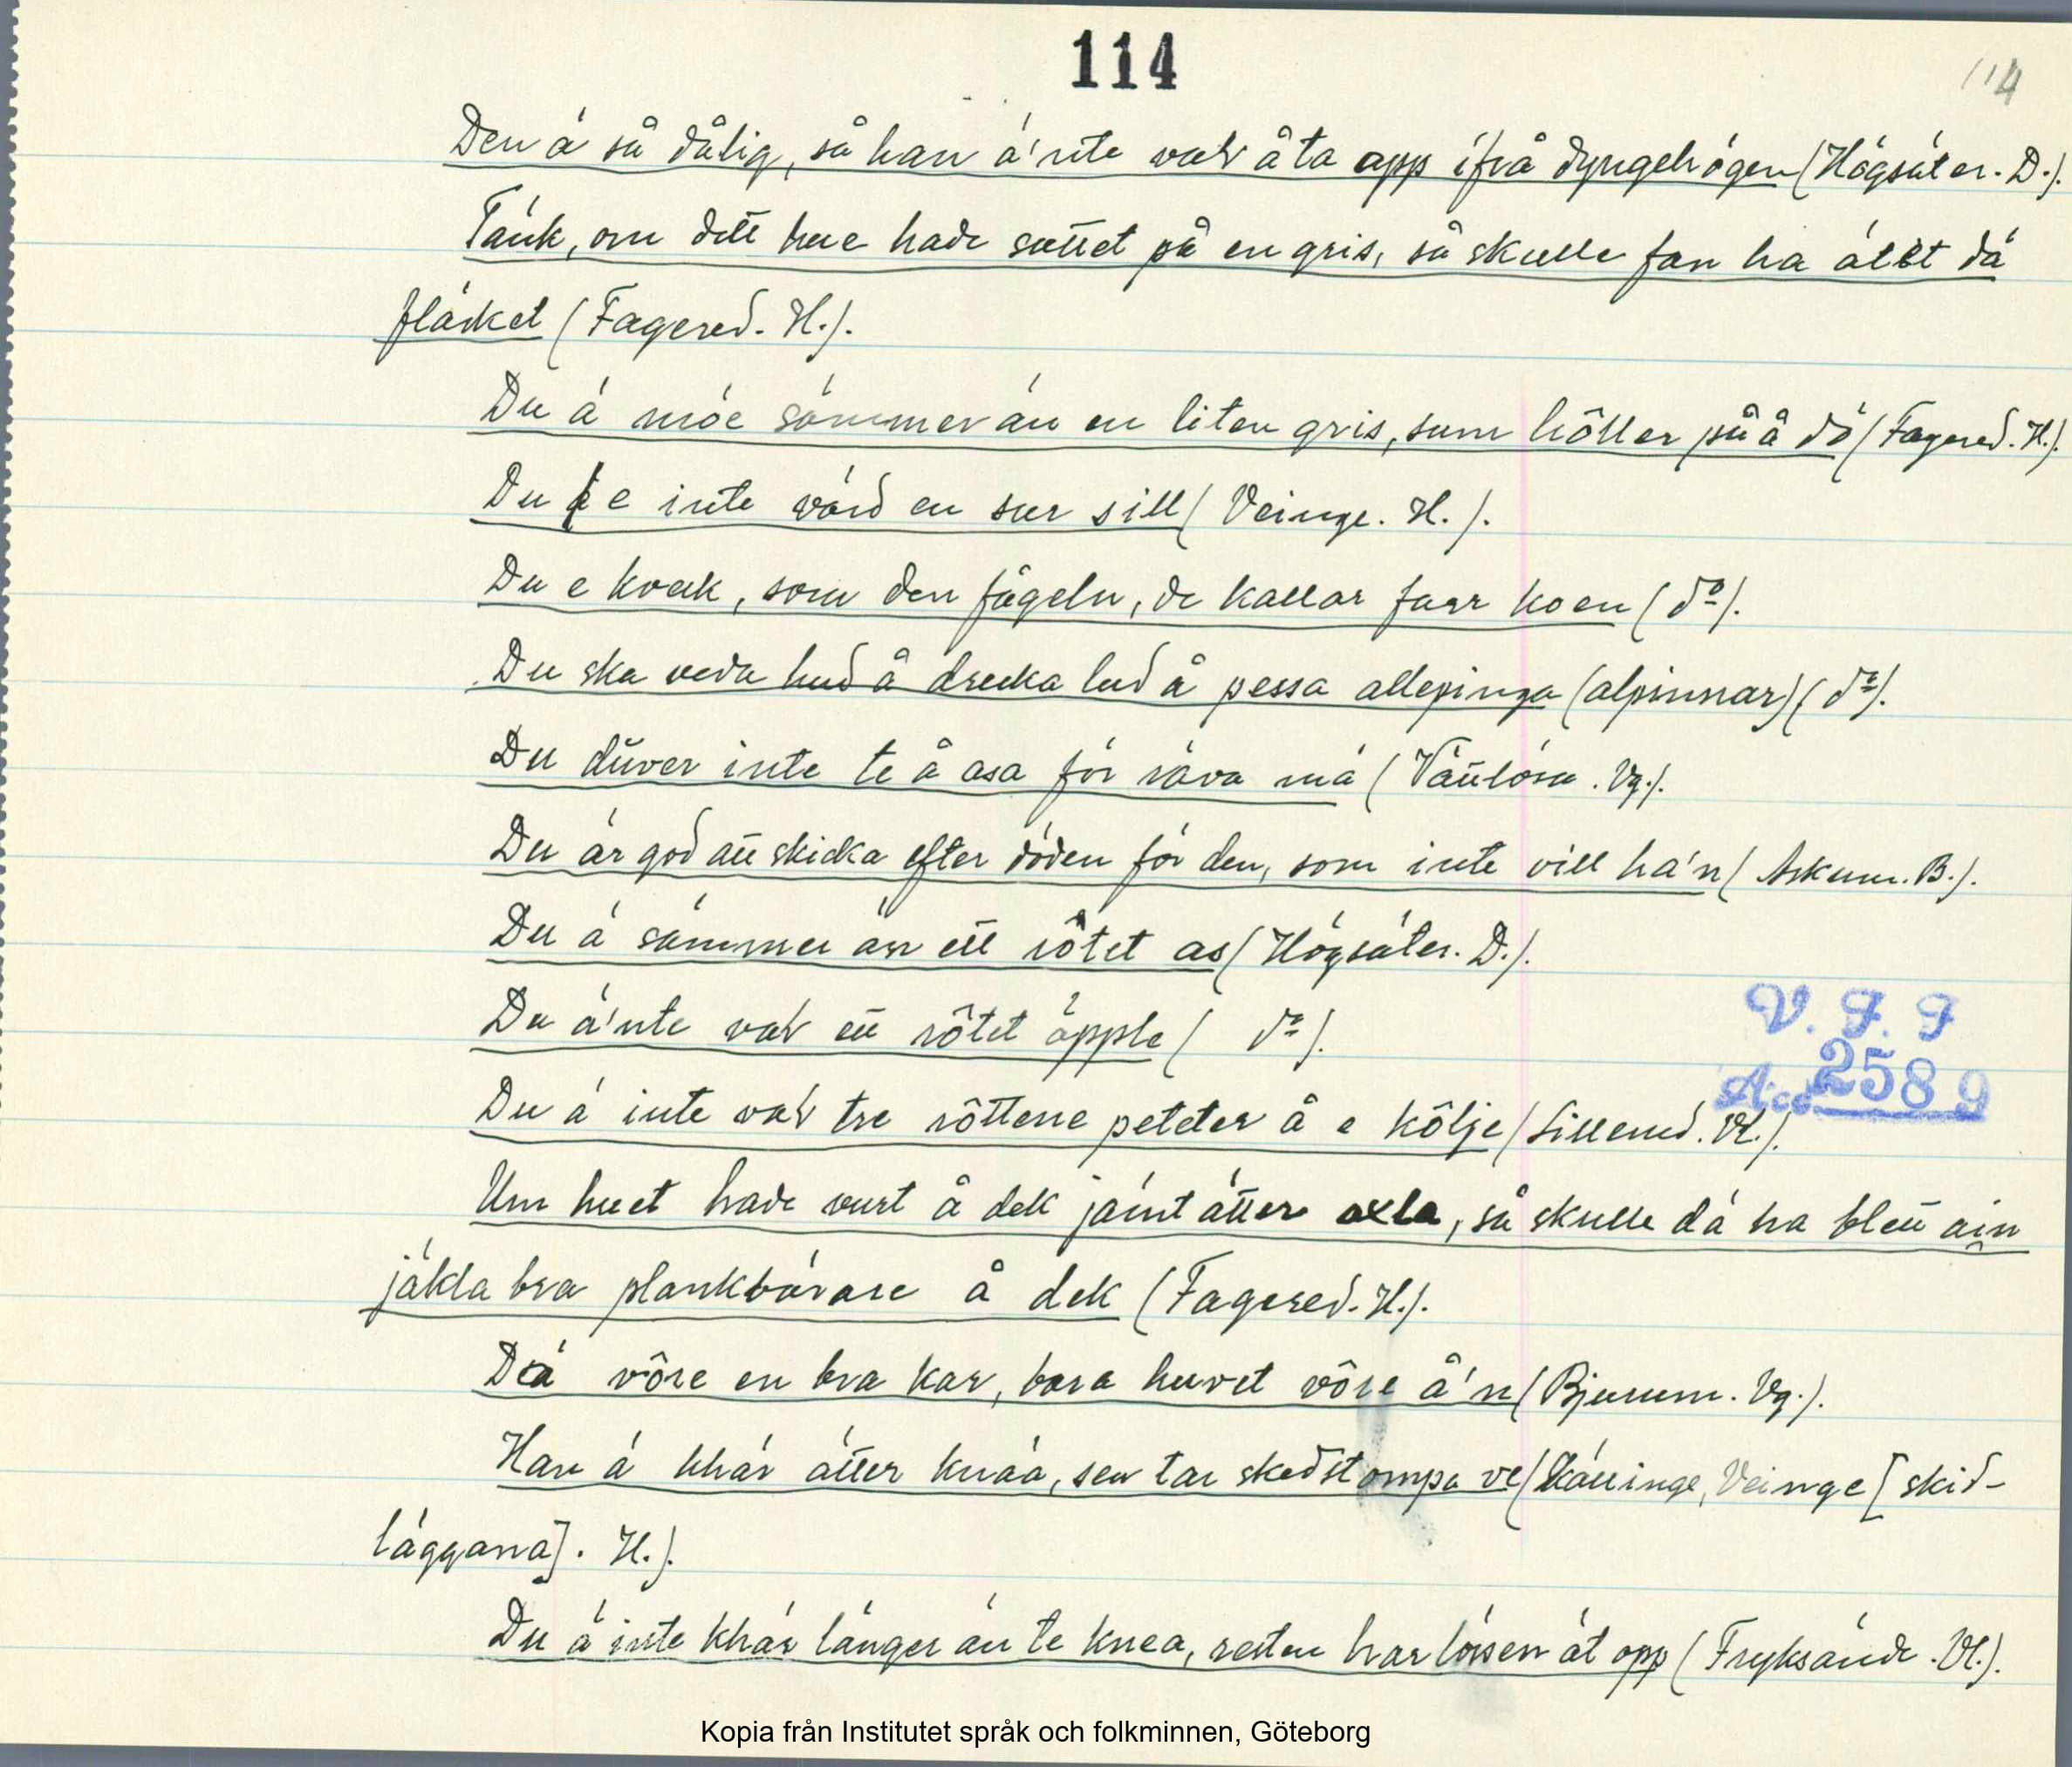 114
114
Den ä så dålig, så han ä'nte vah å ta opp ifrå dyngehögen (Högsäter. D.).
Tänk, om dett hue hade suttet på en gris, så skulle fan ha ätet dä
fläsket (Fagered. H.).
Du ä möe sämmer än en liten gris, sum höller på å dö (Fagered. H.).
Du e inte värd en sur sill (Veinge. H.).
Du e kvek, som den fågeln, de kallar farr koen (do).
Du ska veda hud å drecka lud å pessa allepinga (alpinnar) (do).
Du düver inte te å asa för räva mä (Vättlösa. Vg.).
Du är god att skicka efter döden för den, som inte vill ha'n (Askum. B.).
Du ä sämmer än ett rôtet as (Högsäter. D.).
Du ä'nte vah ett rôtet äpple (do).
V. F. F
Acc 2589
Du ä inte vah tre rôttene peteter å e kôlje (Sillerud. Vl.).
Um huet hade vurt å dek jämt ätter axla, så skulle dä ha blett ain
jäkla bra plankbärare å dek (Fagered. H.).
Dä vôre en bra kar, bara huvet vôre å'n (Bjurum. Vg.).
Han ä khar ätter knäa, sen tar skedstompa ve (Källinge, Veinge [skid-
läggana]. H.).
Du ä inte khar länger än te knea, resten har lörsen ät opp (Fryksände. Vl.).
Kopia från Institutet språk och folkminnen, Göteborg